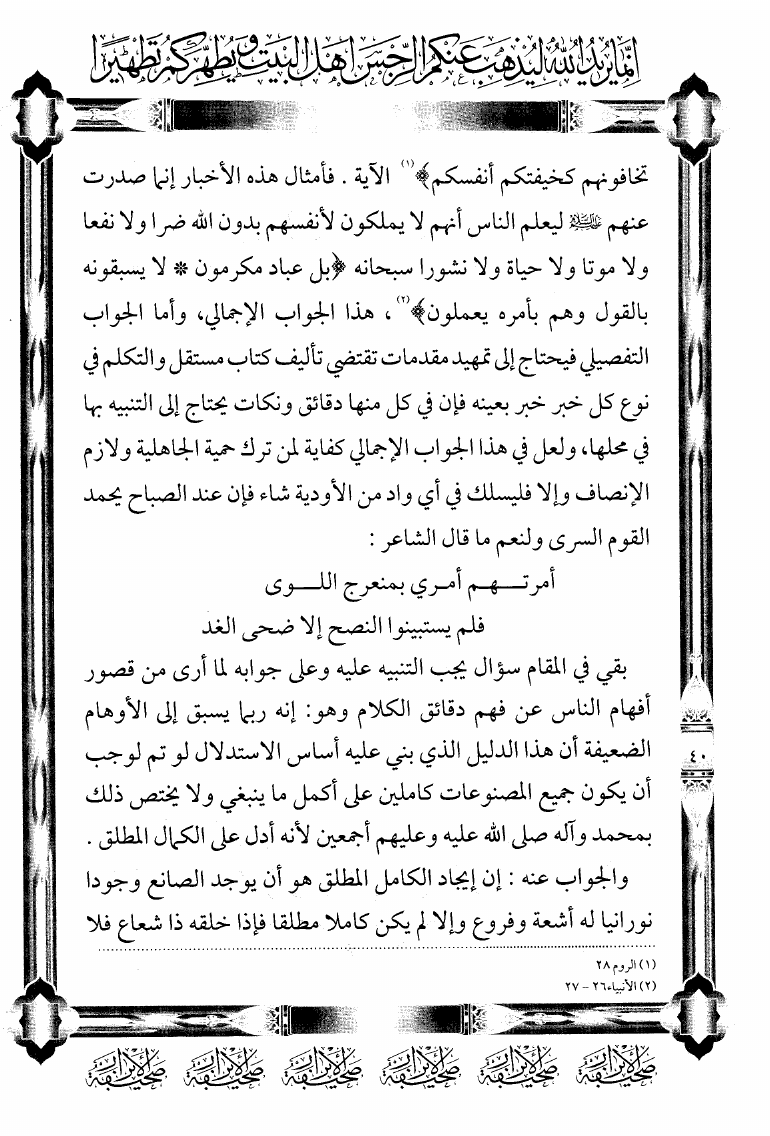 إنما يريد الله ليذهب عنكم الرجس أهل البيت ويطهركم تطهيرا
تخافونهم كخيفتكم أنفسكم﴾(١) الآية . فأمثال هذه الأخبار إنما صدرت
عنهم عليهم السلام ليعلم الناس أنهم لا يملكون لأنفسهم بدون الله ضرا ولا نفعا
ولا موتا ولا حياة ولا نشورا سبحانه ﴿بل عباد مكرمون * لا يسبقونه
بالقول وهم بأمره يعملون﴾(٢)، هذا الجواب الإجمالي، وأما الجواب
التفصيلي فيحتاج إلى تمهيد مقدمات تقتضي تأليف كتاب مستقل والتكلم في
نوع كل خبر خبر بعينه فإن في كل منها دقائق ونكات يحتاج إلى التنبيه بها
في محلها، ولعل في هذا الجواب الإجمالي كفاية لمن ترك حمية الجاهلية ولازم
الإنصاف وإلا فليسلك في أي واد من الأودية شاء فإن عند الصباح يحمد
القوم السرى ولنعم ما قال الشاعر :
أمرتـــهـم أمـري بمنعرج اللـــوى
فلم يستبينوا النصح إلا ضحى الغد
بقي في المقام سؤال يجب التنبيه عليه وعلى جوابه لما أرى من قصور
أفهام الناس عن فهم دقائق الكلام وهو: إنه ربما يسبق إلى الأوهام
الضعيفة أن هذا الدليل الذي بني عليه أساس الاستدلال لو تم لوجب
أن يكون جميع المصنوعات كاملين على أكمل ما ينبغي ولا يختص ذلك
بمحمد وآله صلى الله عليه وعليهم أجمعين لأنه أدل على الكمال المطلق .
والجواب عنه : إن إيجاد الكامل المطلق هو أن يوجد الصانع وجودا
نورانيا له أشعة وفروع وإلا لم يكن كاملا مطلقا فإذا خلقه ذا شعاع فلا
٤٠
(١) الروم ٢٨
(٢) الأنبياء ٢٦ – ٢٧
صحيفة الأبرار صحيفة الأبرار صحيفة الأبرار صحيفة الأبرار صحيفة الأبرار صحيفة الأبرار